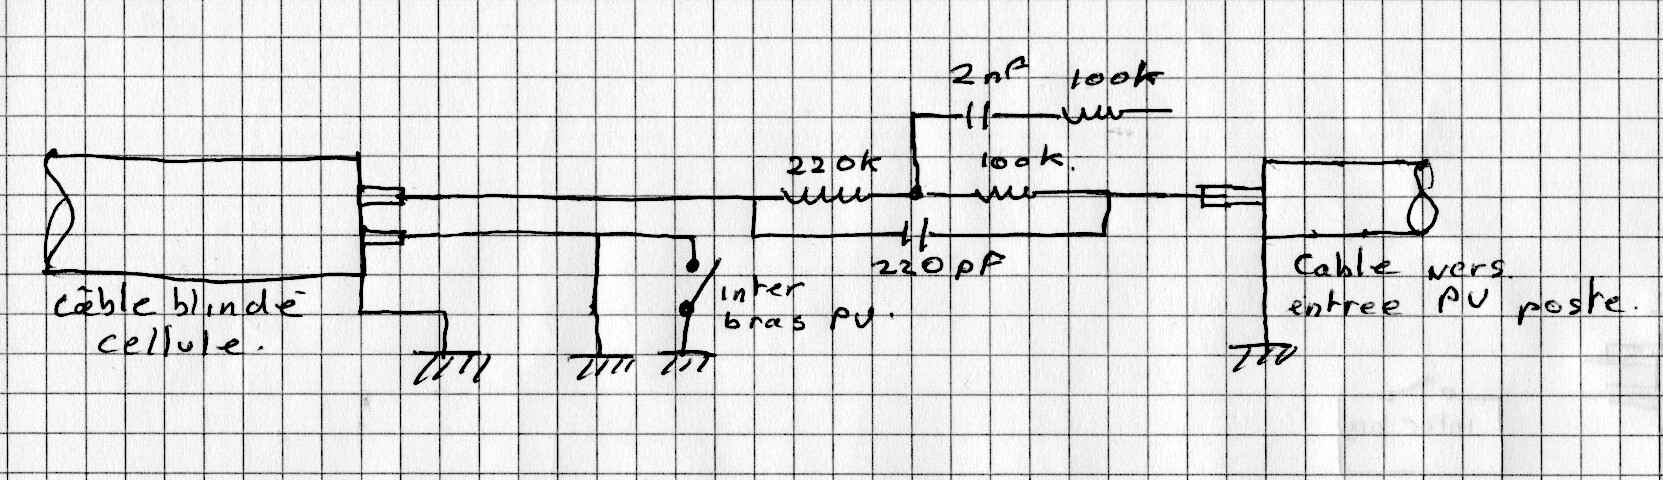 2 nF 100k
220k 100k.
220 pF
câble blindé
cellule.
inter
bras PU.
Cable vers.
entree PU poste.